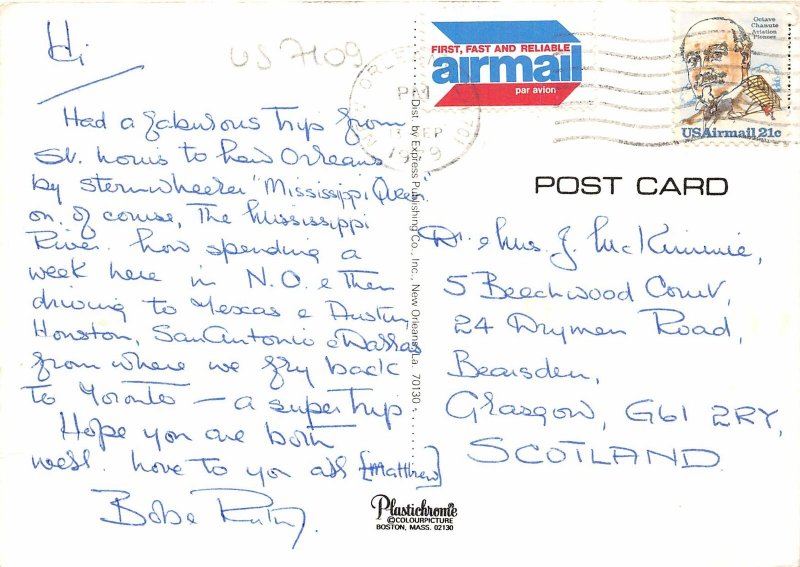 Hi
US 7109
FIRST, FAST AND RELIABLE
airmail
par avion
PM
SEP
Octave
Chanute
Aviation
Pioneer
USAirmail 21c
Had a fabulous Trip from
St. Louis to New Orleans
by sternwheeler "Mississippi Queen"
on, of course, The Mississippi
River. Now spending a
week here in N.O. & then
driving to Texas & Austin,
Houston, San Antonio & Dallas
from where we fly back
to Toronto — a super trip
Hope you are both
well. Love to you all [Matthew]
Dist. by Express Publishing Co., Inc., New Orleans, La. 70130
POST CARD
Dr. & Mrs. J. McKimmie,
5 Beechwood Court,
24 Drymen Road,
Bearsden,
Glasgow, G61 2RY,
SCOTLAND
Plastichrome
©COLOURPICTURE
BOSTON, MASS. 02130